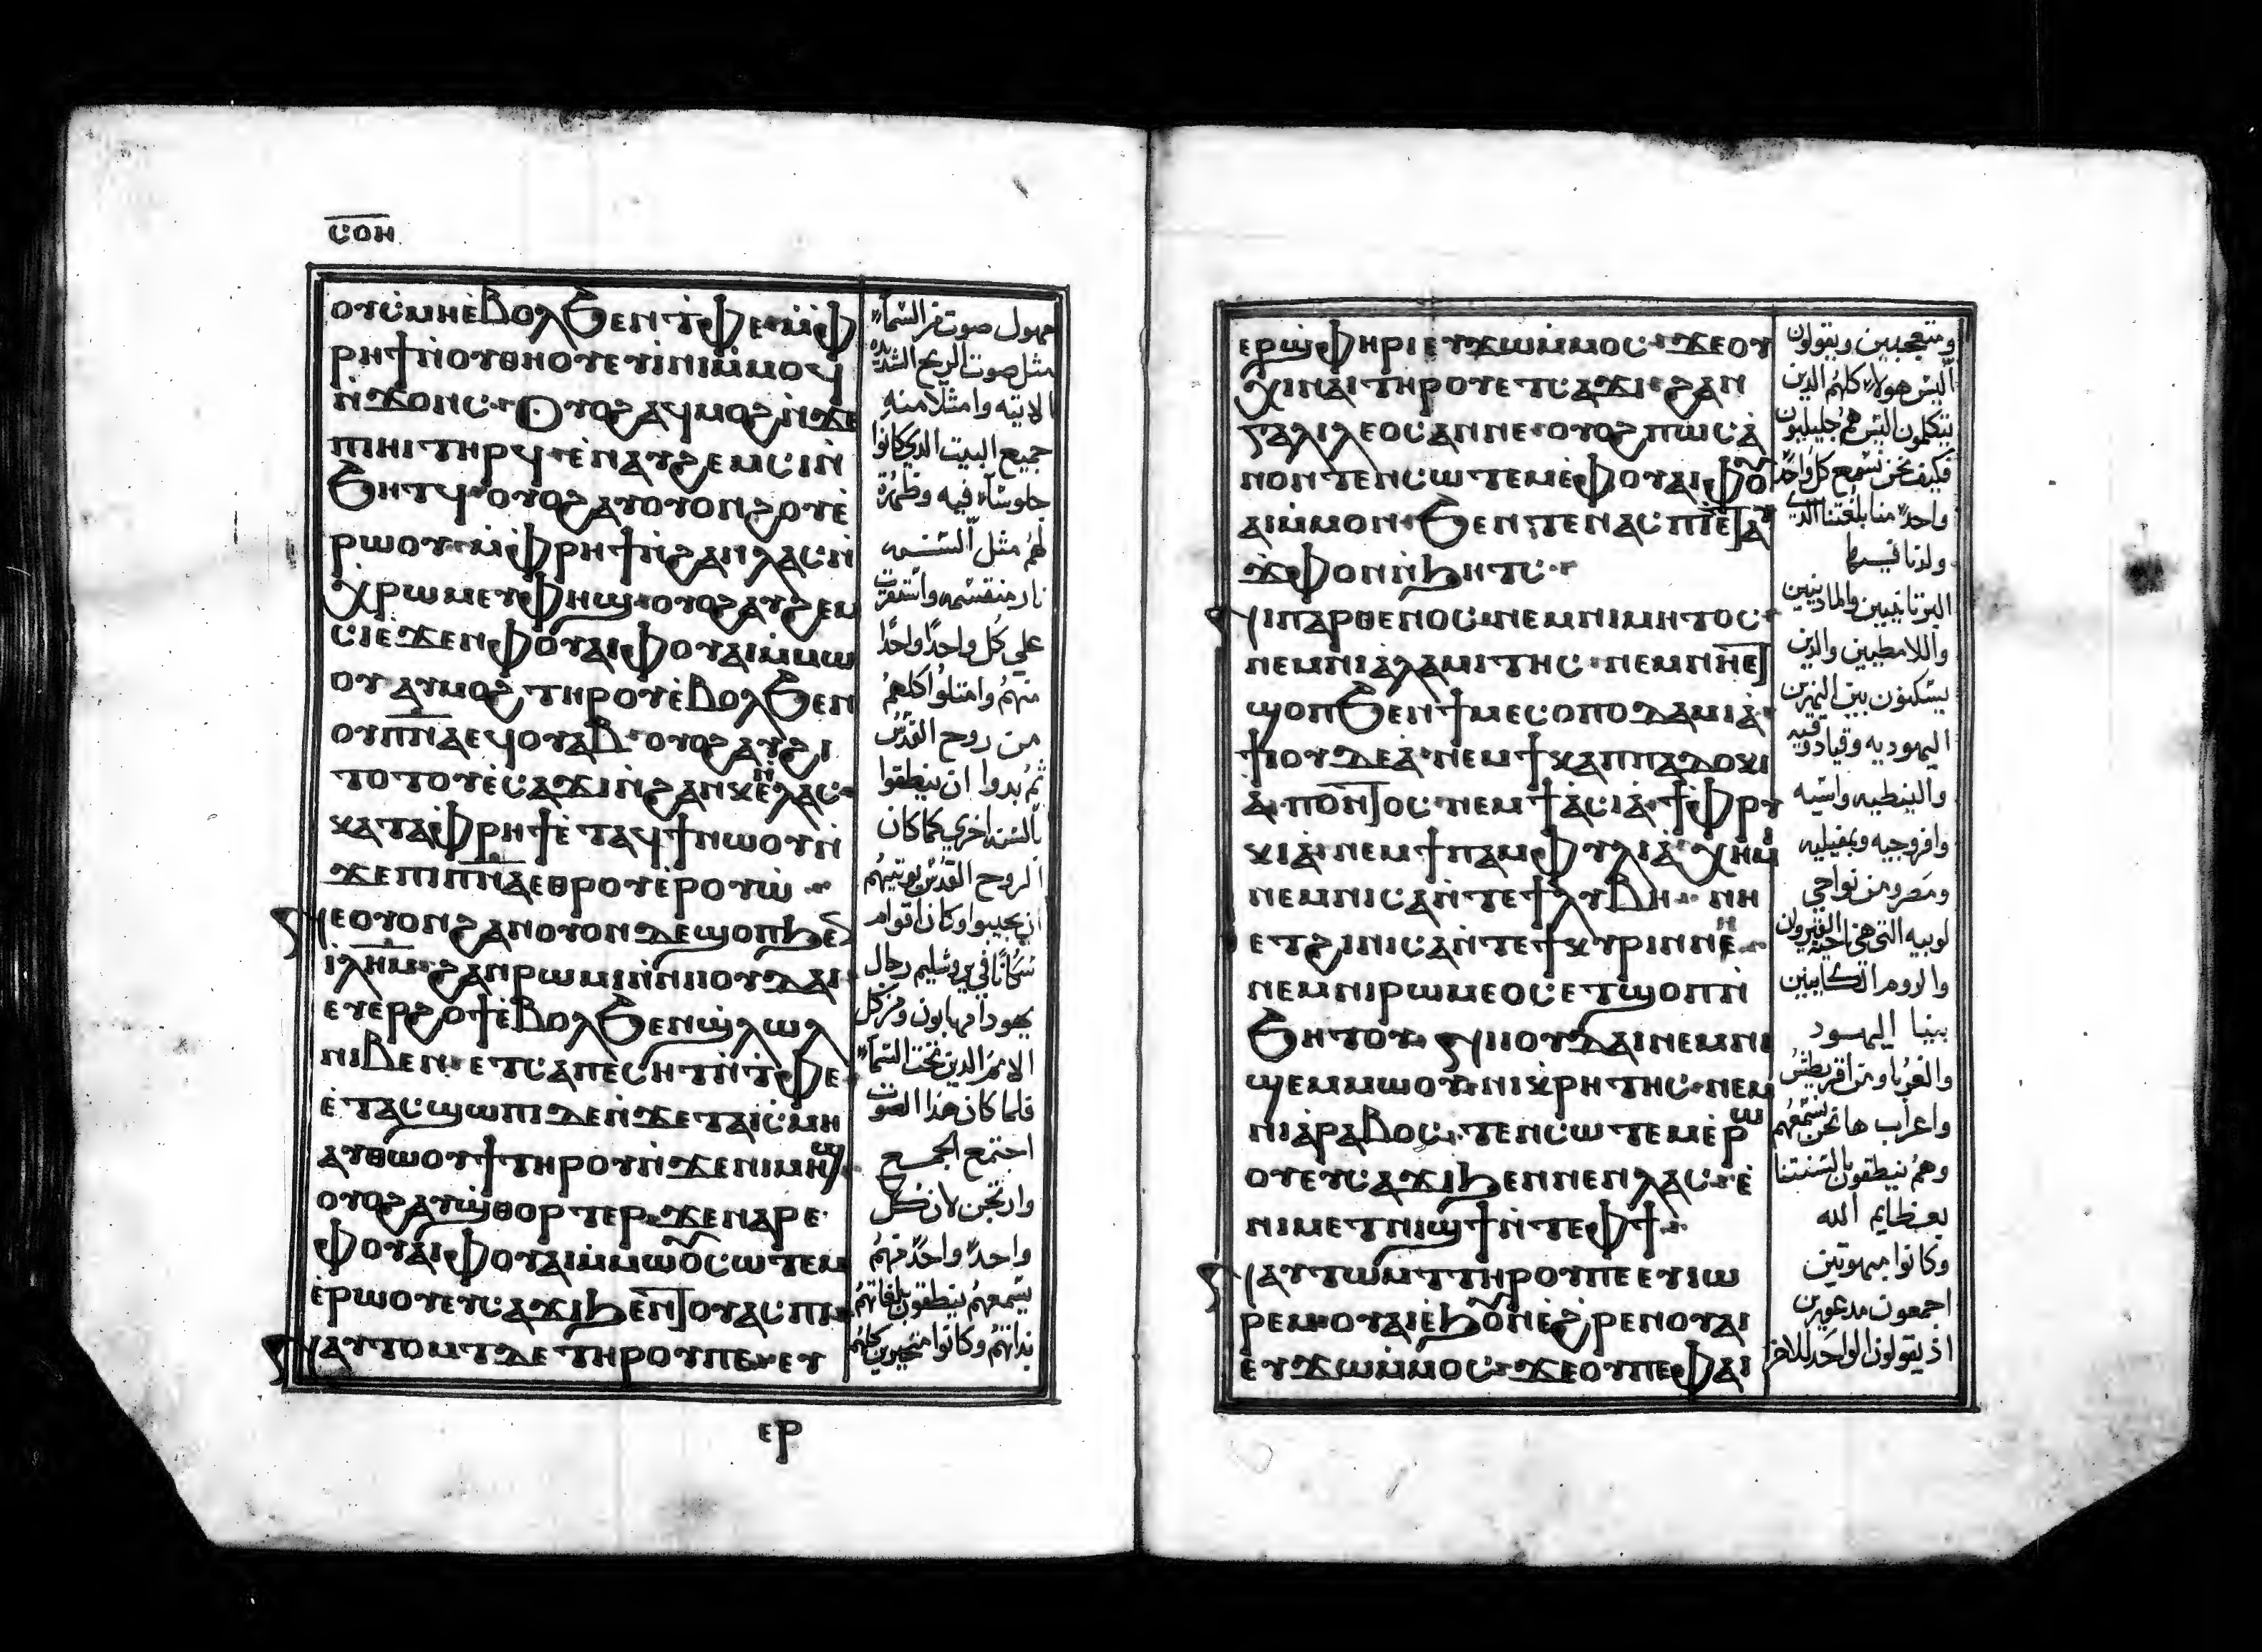 ⲥⲟⲏ
ⲟⲩⲥ̀ⲙⲏⲉ̀ⲃⲟⲗϧⲉⲛⲧ̀ⲫⲉ·ⲙ̀ⲫ
ⲣⲏϯⲛ̀ⲟⲩⲑⲏⲟⲩⲉⲩⲓⲛⲓⲙ̀ⲙⲟϥ
ⲛ̀ϫⲟⲛⲥ·ⲟⲩⲟϩⲁϥⲙⲟϩⲛ̀ϫⲉ
ⲡⲓⲏⲓⲧⲏⲣϥ·ⲉ̀ⲛⲁⲩϩⲉⲙⲥⲓⲛ̀
ϧⲏⲧϥ·ⲟⲩⲟϩⲁⲩⲟⲩⲟⲛϩⲟⲩⲉ̀
ⲣⲱⲟⲩ·ⲙ̀ⲫⲣⲏϯⲛ̀ϩⲁⲛⲗⲁⲥⲛ̀
ⲭ̀ⲣⲱⲙⲉⲩⲫⲏϣ·ⲟⲩⲟϩⲁⲩϩⲉⲙ
ⲥⲓⲉϫⲉⲛⲫⲟⲩⲁⲓⲫⲟⲩⲁⲓⲙ̀ⲙⲱ
ⲟⲩⲁⲩⲙⲟϩⲧⲏⲣⲟⲩⲉ̀ⲃⲟⲗϧⲉⲛ
ⲟⲩⲡ̅ⲛ̅ⲁⲉϥⲟⲩⲁⲃ·ⲟⲩⲟϩⲁⲩϩⲓ
ⲧⲟⲧⲟⲩⲉ̀ⲥⲁϫⲓⲛ̀ϩⲁⲛⲕⲉⲗⲁⲥ·
ⲕⲁⲧⲁⲫⲣⲏϯⲉ̀ⲧⲁϥϯⲛⲱⲟⲩⲛ̀
ϫⲉⲡⲓⲡ̅ⲛ̅ⲁⲉⲑⲣⲟⲩⲉ̀ⲣⲟⲩⲱ̀
ⲛⲉⲟⲩⲟⲛϩⲁⲛⲟⲩⲟⲛⲇⲉϣⲟⲡϧⲉⲛ
ⲓ̅ⲗ̅ⲏ̅ⲙ̅·ϩⲁⲛⲣⲱⲙⲓⲛ̀ⲛⲓⲟⲩⲇⲁⲓ·
ⲉⲩⲉⲣϩⲟϯⲉ̀ⲃⲟⲗϧⲉⲛϣ̀ⲗⲱⲗ
ⲛⲓⲃⲉⲛ·ⲉⲧⲥⲁⲡⲉⲥⲏⲧⲛ̀ⲧ̀ⲫⲉ·
ⲉ̀ⲧⲁⲥϣⲱⲡⲓⲇⲉⲛ̀ϫⲉⲧⲁⲓⲥ̀ⲙⲏ
ⲁⲩⲑⲱⲟⲩϯⲧⲏⲣⲟⲩⲛ̀ϫⲉⲛⲓⲙⲏϣ
ⲟⲩⲟϩⲁⲩϣ̀ⲑⲟⲣⲧⲉⲣ·ϫⲉⲛⲁⲣⲉ·
ⲫⲟⲩⲁⲓⲫⲟⲩⲁⲓⲙ̀ⲙⲱⲟⲩⲥⲱⲧⲉⲙ
ⲉ̀ⲣⲱⲟⲩⲉⲩⲥⲁϫⲓϧⲉⲛⲧⲟⲩⲁⲥⲡⲓ·
ⲛⲁⲩⲧⲟⲙⲧⲇⲉⲧⲏⲣⲟⲩⲡⲉ·ⲉⲩ
ⲉⲣ
مهول صوت من السماء
مثل صوت الريح الشديده
الاتيه وامتلا منه
جميع البيت الدي كانوا
جلوساً فيه وظهرة
لهم مثل السنه
نار منقسمه واستقرت
علي كل واحداً واحداً
منهم وامتلوا كلهم
من روح القدس
ثم بدوا ان ينطقوا
بالسنه اخري كما كان
الروح القدس يوتيهم
ان يجيبوا وكان اقوام
سكاناً في يروشليم رجال
يهودا مهابون ومن كل
الامم الدين تحت السماء
فلما كان هدا الصوت
اجتمع الجمع
وارتجن لان كل
واحد واحد منهم
يسمعهم ينطقون بلغاتهم
بداتهم وكانوا متحيرين كلهم
ⲉⲣϣ̀ⲫⲏⲣⲓⲉⲩϫⲱⲙ̀ⲙⲟⲥ·ϫⲉⲟⲩ
ⲭⲓⲛⲁⲓⲧⲏⲣⲟⲩⲉⲧⲥⲁϫⲓ·ϩⲁⲛ
ⲅⲁⲗⲓⲗⲉⲟⲥⲁⲛⲛⲉ·ⲟⲩⲟϩⲡⲱⲥⲁ̀
ⲛⲟⲛⲧⲉⲛⲥⲱⲧⲉⲙⲉ̀ⲫⲟⲩⲁⲓⲫⲟⲩ
ⲁⲓⲙ̀ⲙⲟⲛ·ϧⲉⲛⲧⲉⲛⲁⲥⲡⲓⲉⲧⲁⲩ
ϫ̀ⲫⲟⲛⲛ̀ϧⲏⲧⲥ·
ⲛⲓⲡⲁⲣⲑⲉⲛⲟⲥ·ⲛⲉⲙⲛⲓⲙⲏⲧⲟⲥ·
ⲛⲉⲙⲛⲓⲁ̀ⲗⲁⲙⲓⲧⲏⲥ·ⲛⲉⲙⲛⲏⲉⲧ
ϣⲟⲡϧⲉⲛϯⲙⲉⲥⲟⲡⲟⲇⲁⲙⲓⲁ̀·
ϯⲓⲟⲩⲇⲉⲁ̀·ⲛⲉⲙϯⲕⲁⲡⲡⲁⲇⲟⲕⲓ
ⲁ̀·ⲡⲟⲛⲧⲟⲥ·ⲛⲉⲙϯⲁ̀ⲥⲓⲁ̀·ϯⲫⲣⲩ
ⲕⲓⲁ̀·ⲛⲉⲙϯⲡⲁⲙⲫⲩⲗⲓⲁ̀·ⲭⲏⲙⲓ
ⲛⲉⲙⲛⲓⲥⲁⲛ̀ⲧⲉϯⲗⲩⲃⲏ·ⲛⲏ
ⲉⲧϩⲓⲛⲓⲥⲁⲛ̀ⲧⲉϯⲕⲩⲣⲓⲛⲛⲏ
ⲛⲉⲙⲛⲓⲣⲱⲙⲉⲟⲥⲉⲧϣⲟⲡⲛ̀
ϧⲏⲧⲟⲩ·ⲛⲓⲓⲟⲩⲇⲁⲓⲛⲉⲙⲛⲓ
ϣⲉⲙⲙⲱⲟⲩ·ⲛⲓⲕⲣⲏⲧⲏⲥ·ⲛⲉⲙ
ⲛⲓⲁ̀ⲣⲁⲃⲟⲥ·ⲧⲉⲛⲥⲱⲧⲉⲙⲉ̀ⲣⲱ
ⲟⲩⲉⲩⲥⲁϫⲓϧⲉⲛⲛⲉⲛⲗⲁⲥ·ⲉ̀
ⲛⲓⲙⲉⲧⲛⲓϣϯⲛ̀ⲧⲉⲫϯ·
ⲛⲁⲩⲧⲱⲙⲧⲧⲏⲣⲟⲩⲡⲉⲉⲩⲓⲱ
ⲣⲉⲙ·ⲟⲩⲁⲓⲉ̀ϧⲟⲩⲛⲉ̀ϩⲣⲉⲛⲟⲩⲁⲓ
ⲉⲩϫⲱⲙ̀ⲙⲟⲥ·ϫⲉⲟⲩⲡⲉⲫⲁⲓ
ومتعجبين ويقولون
اليس هولاء كلهم الدين
يتكلمون اليس هم جليليون
فكيف نحن نسمع كل واحداً
واحد منا بلغتنا الدي
ولدنا فيها
البرتانيين والمادنيين
واللامطيين والدين
يسكنون بين النهرين
اليهوديه وقبادوقيه
والبنطيه واسيه
وافروجيه وبمفيليه
ومصر ومن نواحي
لوبيه التي هي ناحية القيروان
والروم الكايينين
بينا اليهود
والغربا ومن اقريطس
واعراب ها نحن نسمعهم
وهم ينطقون بالسنتنا
بعظايم الله
وكانوا مبهوتين
اجمعون مدعورين
اد يقولون الواحد للاخر